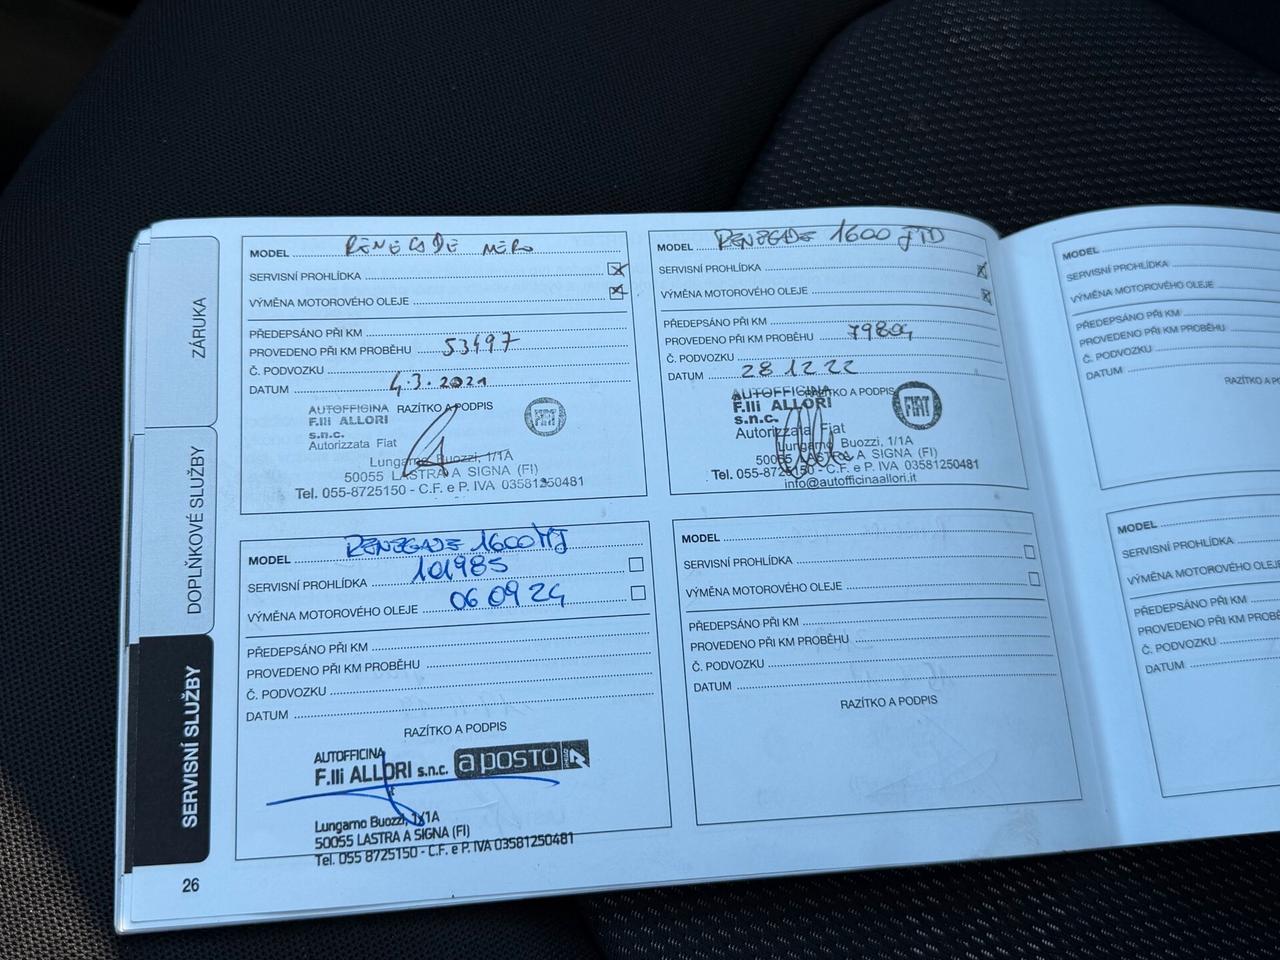 ZÁRUKA
DOPLŇKOVÉ SLUŽBY
SERVISNÍ SLUŽBY
26
MODEL RENEGADE NERO
SERVISNÍ PROHLÍDKA
VÝMĚNA MOTOROVÉHO OLEJE
PŘEDEPSÁNO PŘI KM
PROVEDENO PŘI KM PROBĚHU 53497
Č. PODVOZKU
DATUM 4.3.2021
RAZÍTKO A PODPIS
AUTOFFICINA
F.lli ALLORI
s.n.c.
Autorizzata Fiat
FIAT
Lungarno Buozzi, 1/1A
50055 LASTRA A SIGNA (FI)
Tel. 055-8725150 - C.F. e P. IVA 03581250481
MODEL RENEGADE 1600 JTD
SERVISNÍ PROHLÍDKA
VÝMĚNA MOTOROVÉHO OLEJE
PŘEDEPSÁNO PŘI KM
PROVEDENO PŘI KM PROBĚHU 79804
Č. PODVOZKU
DATUM 28 12 22
RAZÍTKO A PODPIS
AUTOFFICINA
F.lli ALLORI
s.n.c.
Autorizzata Fiat
FIAT
Lungarno Buozzi, 1/1A
50055 LASTRA A SIGNA (FI)
Tel. 055-8725150 - C.F. e P. IVA 03581250481
info@autofficinaallori.it
MODEL
SERVISNÍ PROHLÍDKA
VÝMĚNA MOTOROVÉHO OLEJE
PŘEDEPSÁNO PŘI KM
PROVEDENO PŘI KM PROBĚHU
Č. PODVOZKU
DATUM
RAZÍTKO A
MODEL RENEGADE 1600 MJ
SERVISNÍ PROHLÍDKA 101985
VÝMĚNA MOTOROVÉHO OLEJE 06 09 24
PŘEDEPSÁNO PŘI KM
PROVEDENO PŘI KM PROBĚHU
Č. PODVOZKU
DATUM
RAZÍTKO A PODPIS
AUTOFFICINA
F.lli ALLORI s.n.c. a posto
Lungarno Buozzi, 1/1A
50055 LASTRA A SIGNA (FI)
Tel. 055 8725150 - C.F. e P. IVA 03581250481
MODEL
SERVISNÍ PROHLÍDKA
VÝMĚNA MOTOROVÉHO OLEJE
PŘEDEPSÁNO PŘI KM
PROVEDENO PŘI KM PROBĚHU
Č. PODVOZKU
DATUM
RAZÍTKO A PODPIS
MODEL
SERVISNÍ PROHLÍDKA
VÝMĚNA MOTOROVÉHO OLEJE
PŘEDEPSÁNO PŘI KM
PROVEDENO PŘI KM
Č. PODVOZKU
DATUM